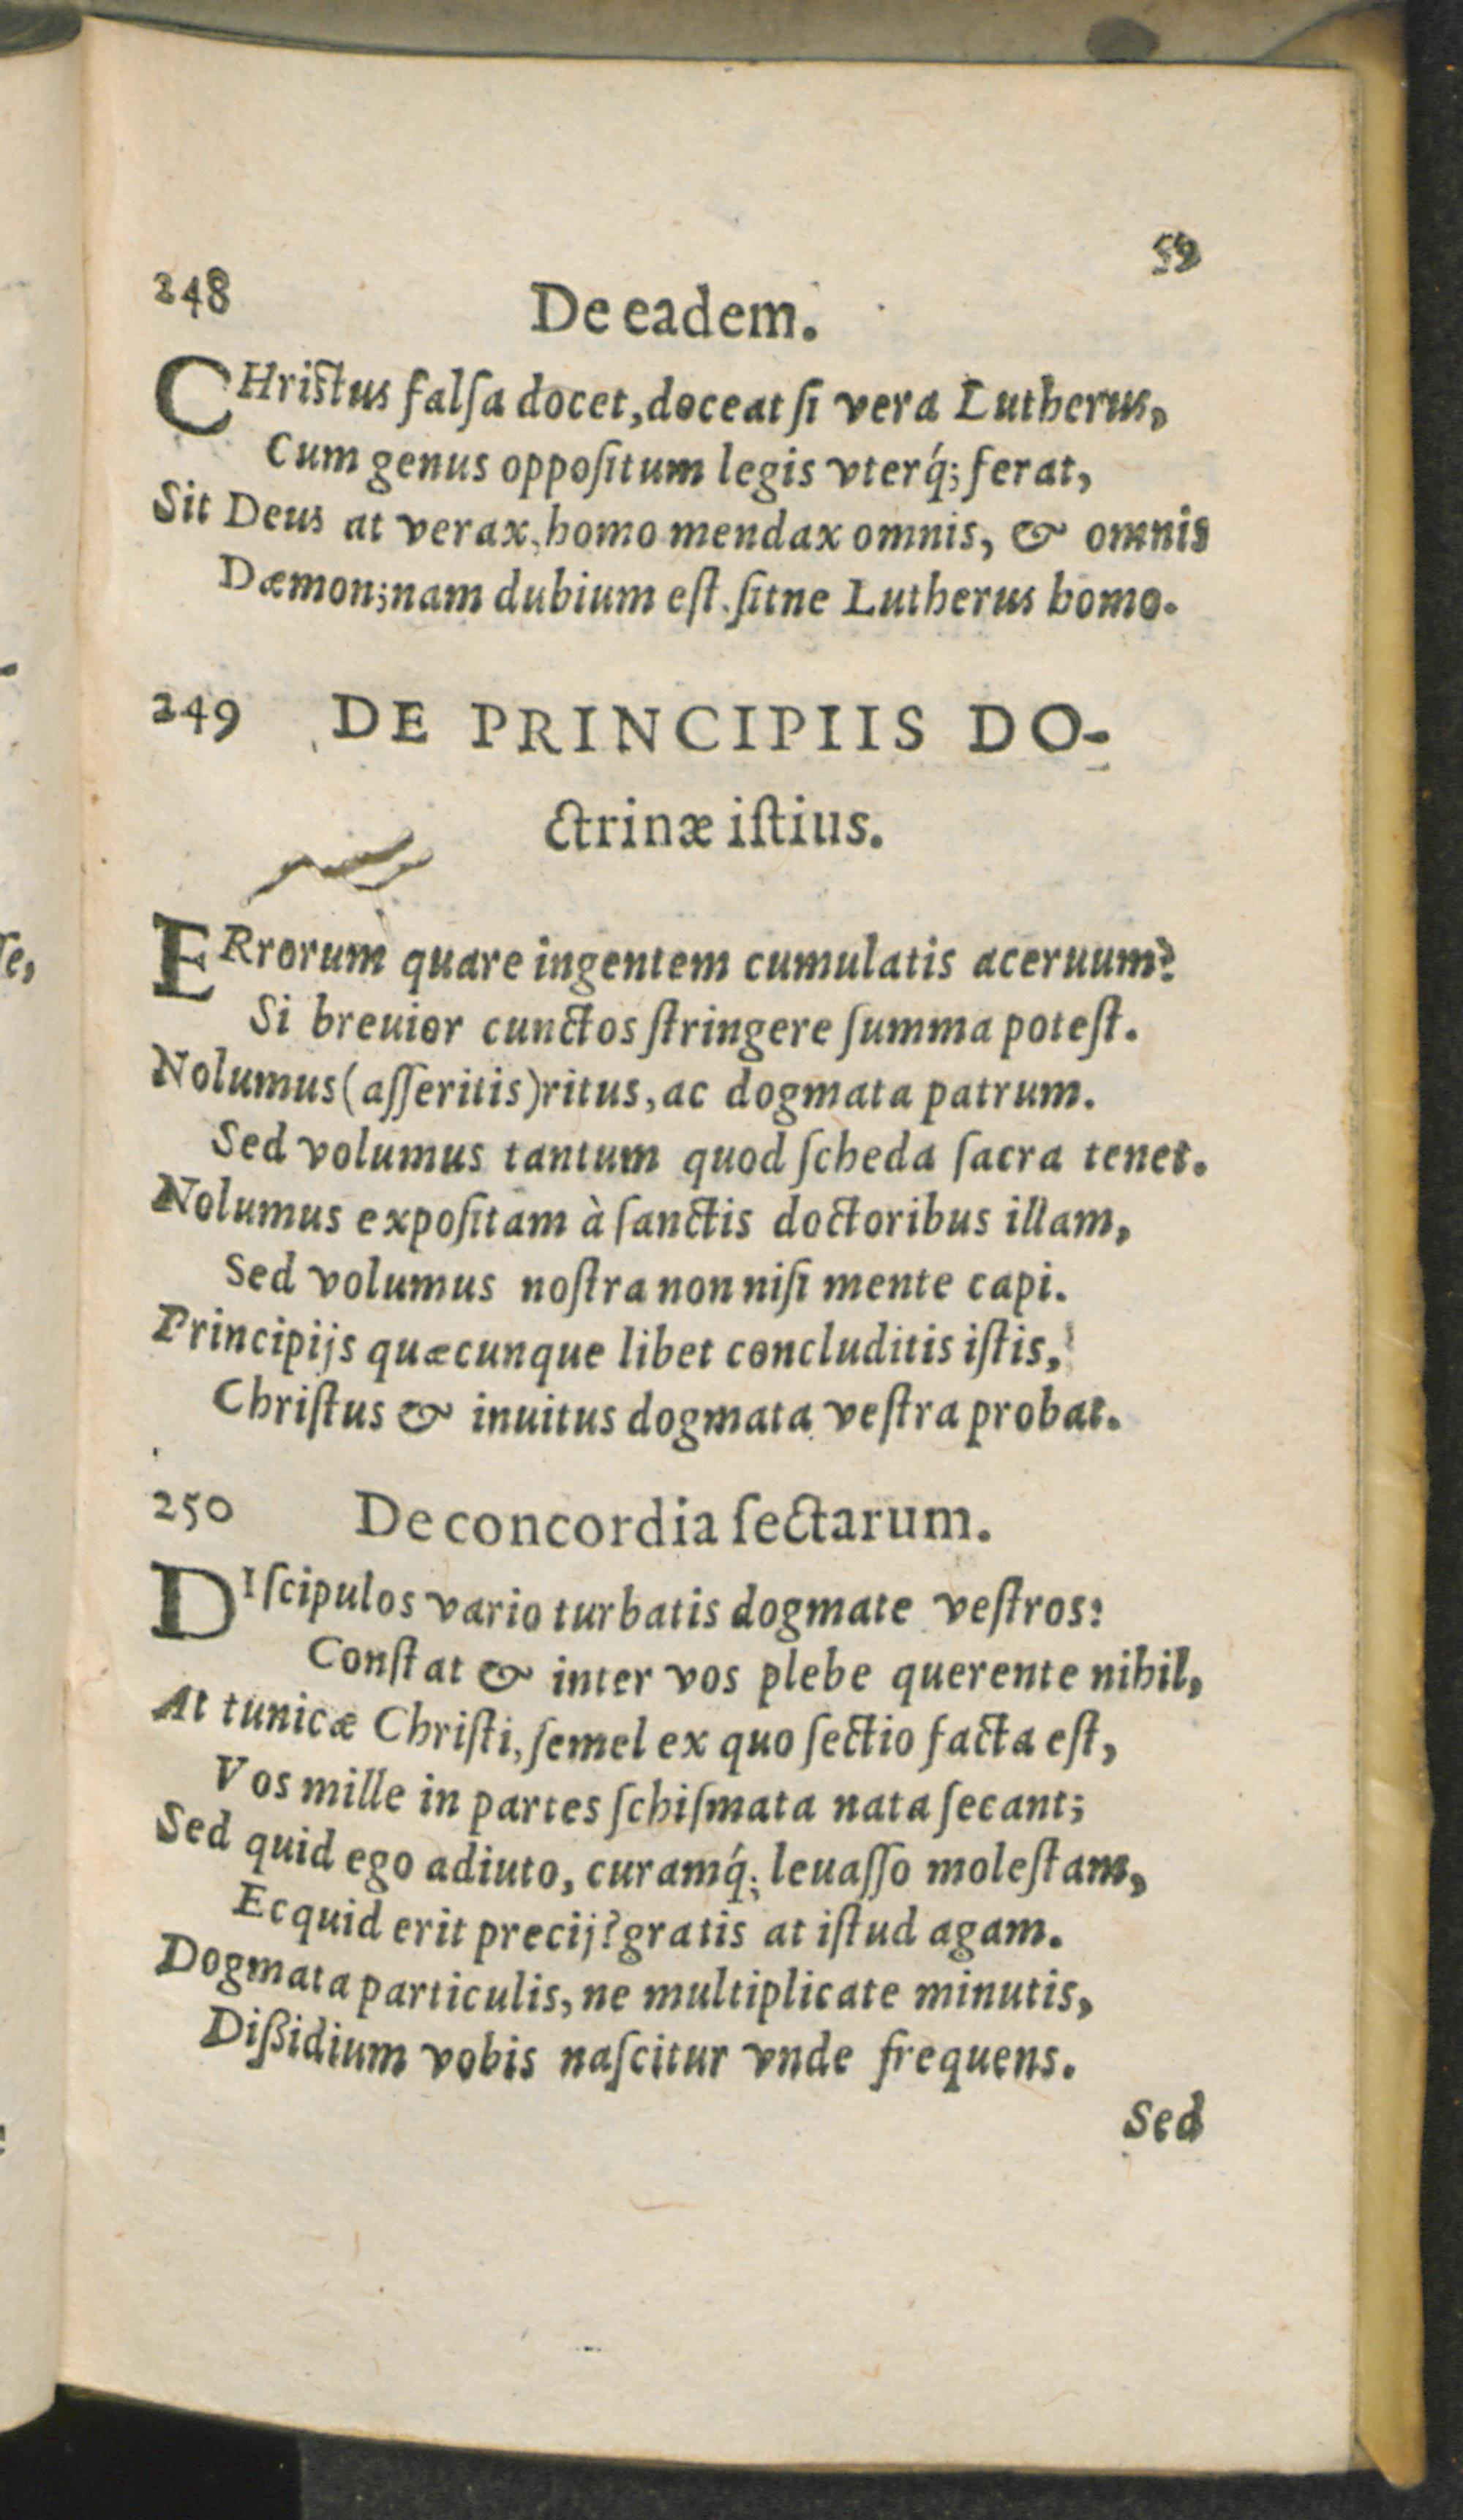 59
248 De eadem.
CHriſtus falſa docet, doceat ſi vera Lutherus,
Cum genus oppoſitum legis vterq́; ferat,
Sit Deus at verax, homo mendax omnis, & omnis
Dæmon; nam dubium eſt. ſitne Lutherus homo.
249 DE PRINCIPIIS DO-
ctrinæ iſtius.
ERrorum quare ingentem cumulatis aceruum?
Si breuior cunctos ſtringere ſumma poteſt.
Nolumus (aſſeritis) ritus, ac dogmata patrum.
Sed volumus tantum quod ſcheda ſacra tenet.
Nolumus expoſitam à ſanctis doctoribus illam,
Sed volumus noſtra non niſi mente capi.
Principijs quæcunque libet concluditis iſtis,
Chriſtus & inuitus dogmata veſtra probat.
250 De concordia ſectarum.
DIſcipulos vario turbatis dogmate veſtros:
Conſtat & inter vos plebe querente nihil,
At tunicæ Chriſti, ſemel ex quo ſectio facta eſt,
Vos mille in partes ſchiſmata nata ſecant;
Sed quid ego adiuto, curamq́; leuaſſo moleſtam,
Ecquid erit precij? gratis at iſtud agam.
Dogmata particulis, ne multiplicate minutis,
Dißidium vobis naſcitur vnde frequens.
Sed